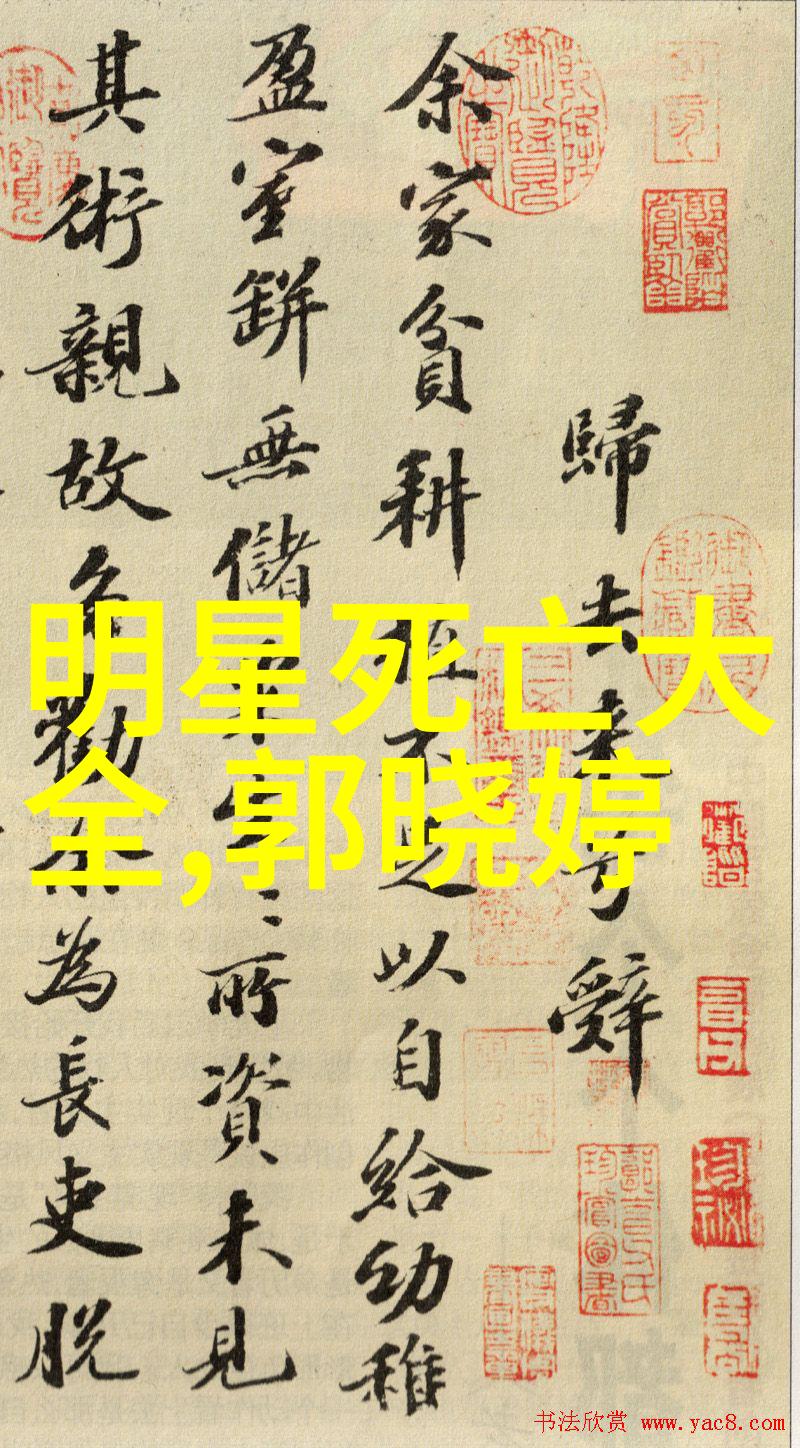 歸去来兮辭
余家貧耕植不足以自給幼稚
盈室缾無儲粟生〻所資未見
其術親故多勸余為長吏脱
明星死亡大
全,郭晓婷
书法欣赏 www.yac8.com